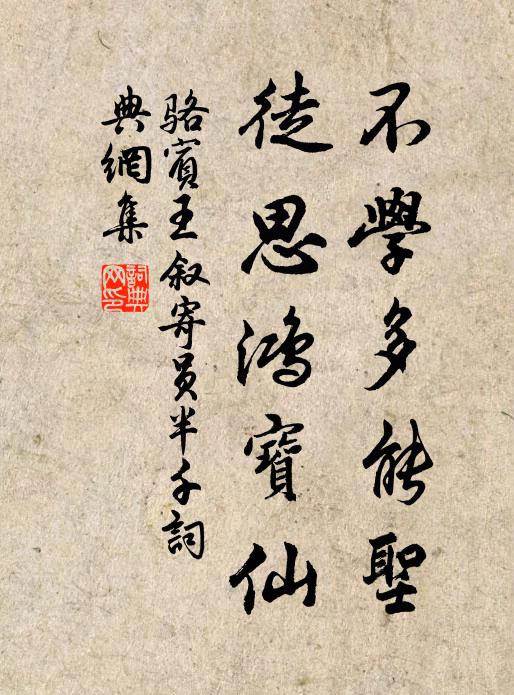 不學多能聖
徒思鴻寶仙
駱賓王叙寄員半千詞
典網集
詞典網印